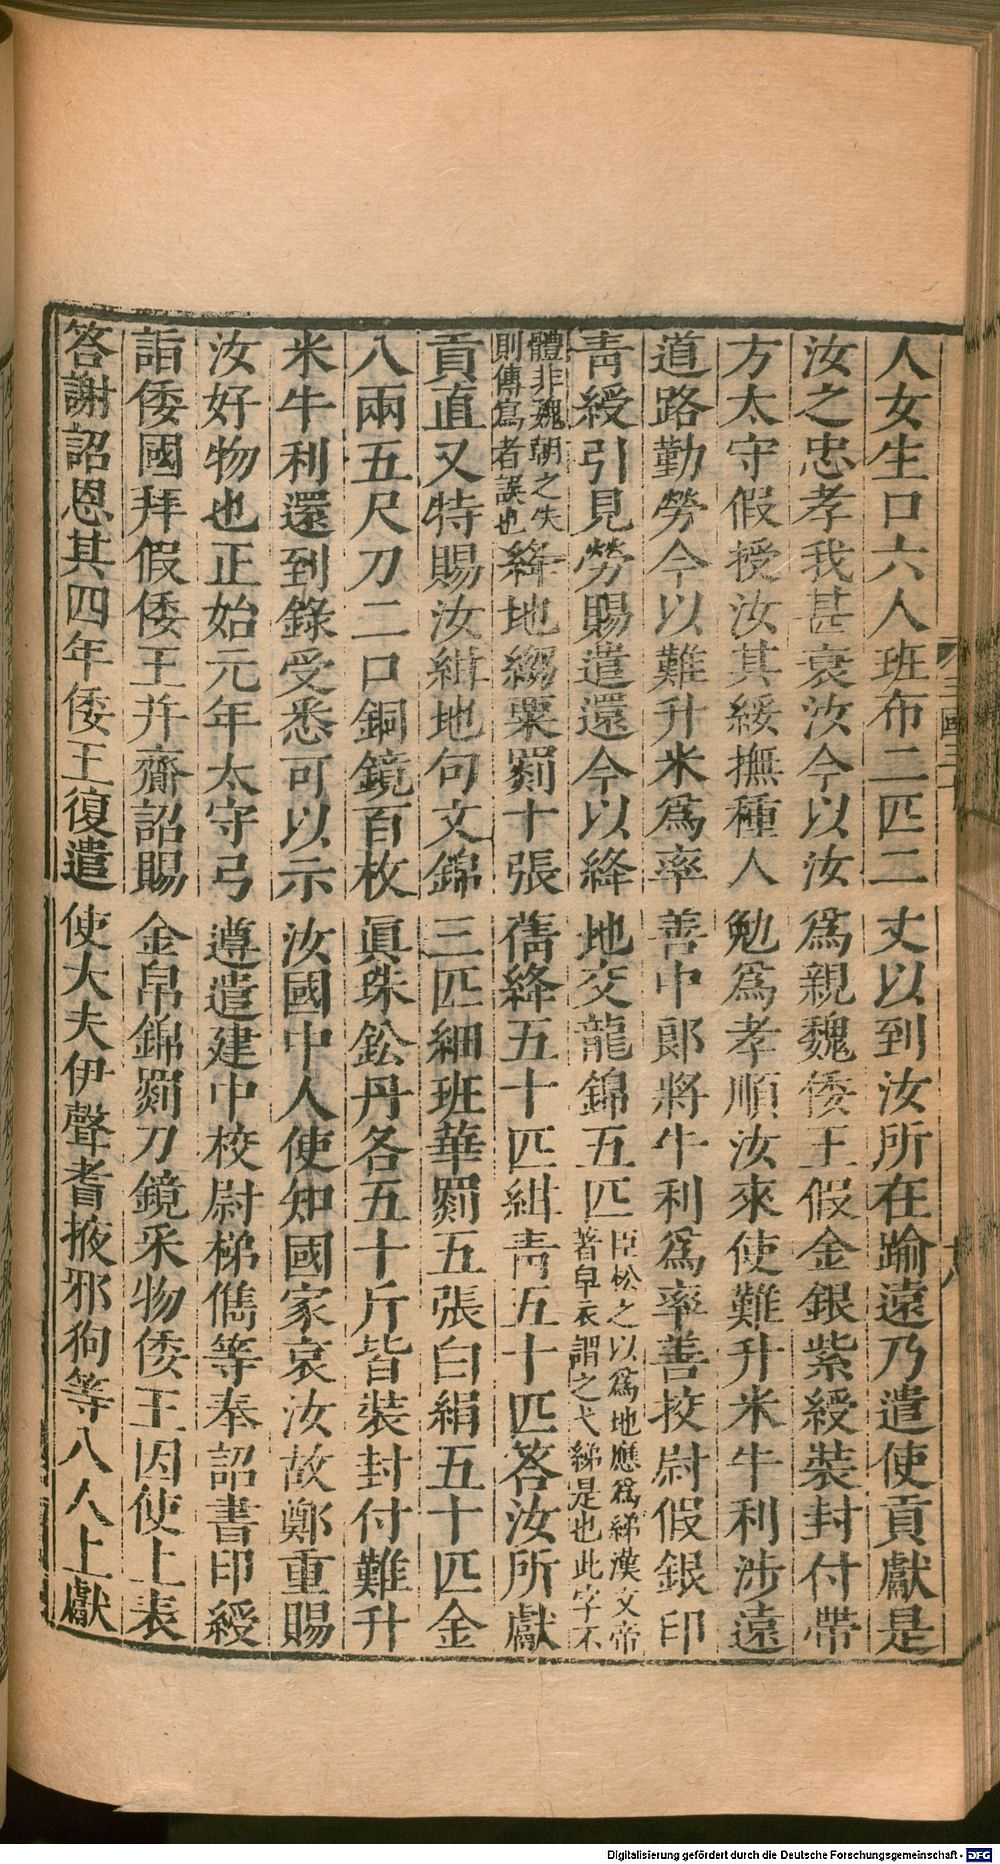 人女生口六人班布二匹二丈以到汝所在踰遠乃遣使貢獻是
汝之忠孝我甚哀汝今以汝爲親魏倭王假金銀紫綬裝封付帶
方太守假授汝其綏撫種人勉爲孝順汝來使難升米牛利涉遠
道路勤勞今以難升米爲率善中郞將牛利爲率善挍尉假銀印
靑綬引見勞賜遣還今以絳地交龍錦五匹臣松之以爲地應爲綈漢文帝著皁衣謂之弋綈是也此字不
體非魏朝之失則傳寫者誤也絳地縐粟罽十張蒨絳五十匹紺靑五十匹答汝所獻
貢直又特賜汝紺地句文錦三匹細班華罽五張白絹五十匹金
八兩五尺刀二口銅鏡百枚眞珠鈆丹各五十斤皆裝封付難升
米牛利還到錄受悉可以示汝國中人使知國家哀汝故鄭重賜
汝好物也正始元年太守弓遵遣建中校尉梯儁等奉詔書印綬
詣倭國拜假倭王幷齎詔賜金帛錦罽刀鏡采物倭王因使上表
答謝詔恩其四年倭王復遣使大夫伊聲耆掖邪狗等八人上獻
Digitalisierung gefördert durch die Deutsche Forschungsgemeinschaft - DFG